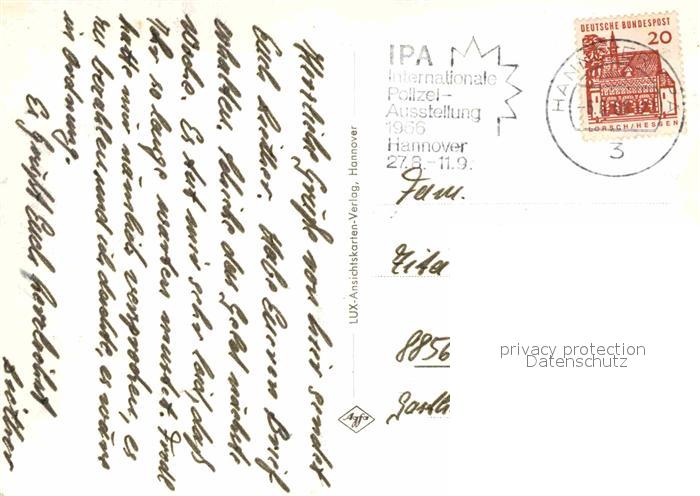 Herzliche Grüße von hier sendet
Euch Lothar. Habe Euren Brief
erhalten. Schicke das Geld nächste
Woche. Es tut mir sehr leid, daß
Ihr so lange warten mußtet.
hatte mir nämlich versprochen, es
zu bezahlen und ich dachte, es wäre
in Ordnung.
Es grüßt Euch herzlichst
Lothar
LUX-Ansichtskarten-Verlag, Hannover
Agfa
IPA
Internationale
Polizei-
Ausstellung
1966
Hannover
27.8.-11.9.
HANNOVER
3
DEUTSCHE BUNDESPOST
20
LORSCH/HESSEN
Fam.
Zita
8856
privacy protection
Datenschutz